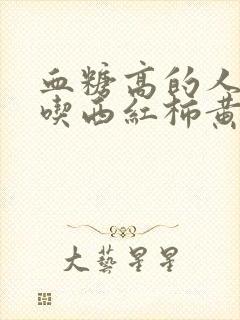 血糖高的人
喫西紅柿黃
大藝星星